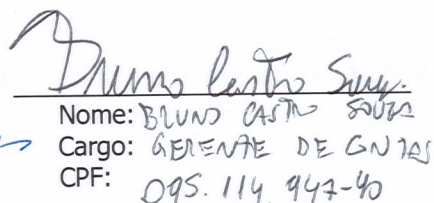 Bruno Castro Souz.
Nome: BRUNO CASTRO SOUZA
Cargo: GERENTE DE CNTAS
CPF: 095.114 947-40